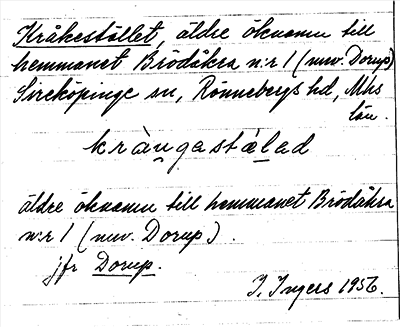 Kråkestället, äldre öknamn till
hemmanet Brödåkra n:r 1 (nuv. Dorup)
Sireköpinge sn, Rönnebergs hd, Mhs
län.
kràngastælad
äldre öknamn till hemmanet Brödåkra
n:r 1 (nuv. Dorup).
jfr Dorup.
I. Ingers 1956.